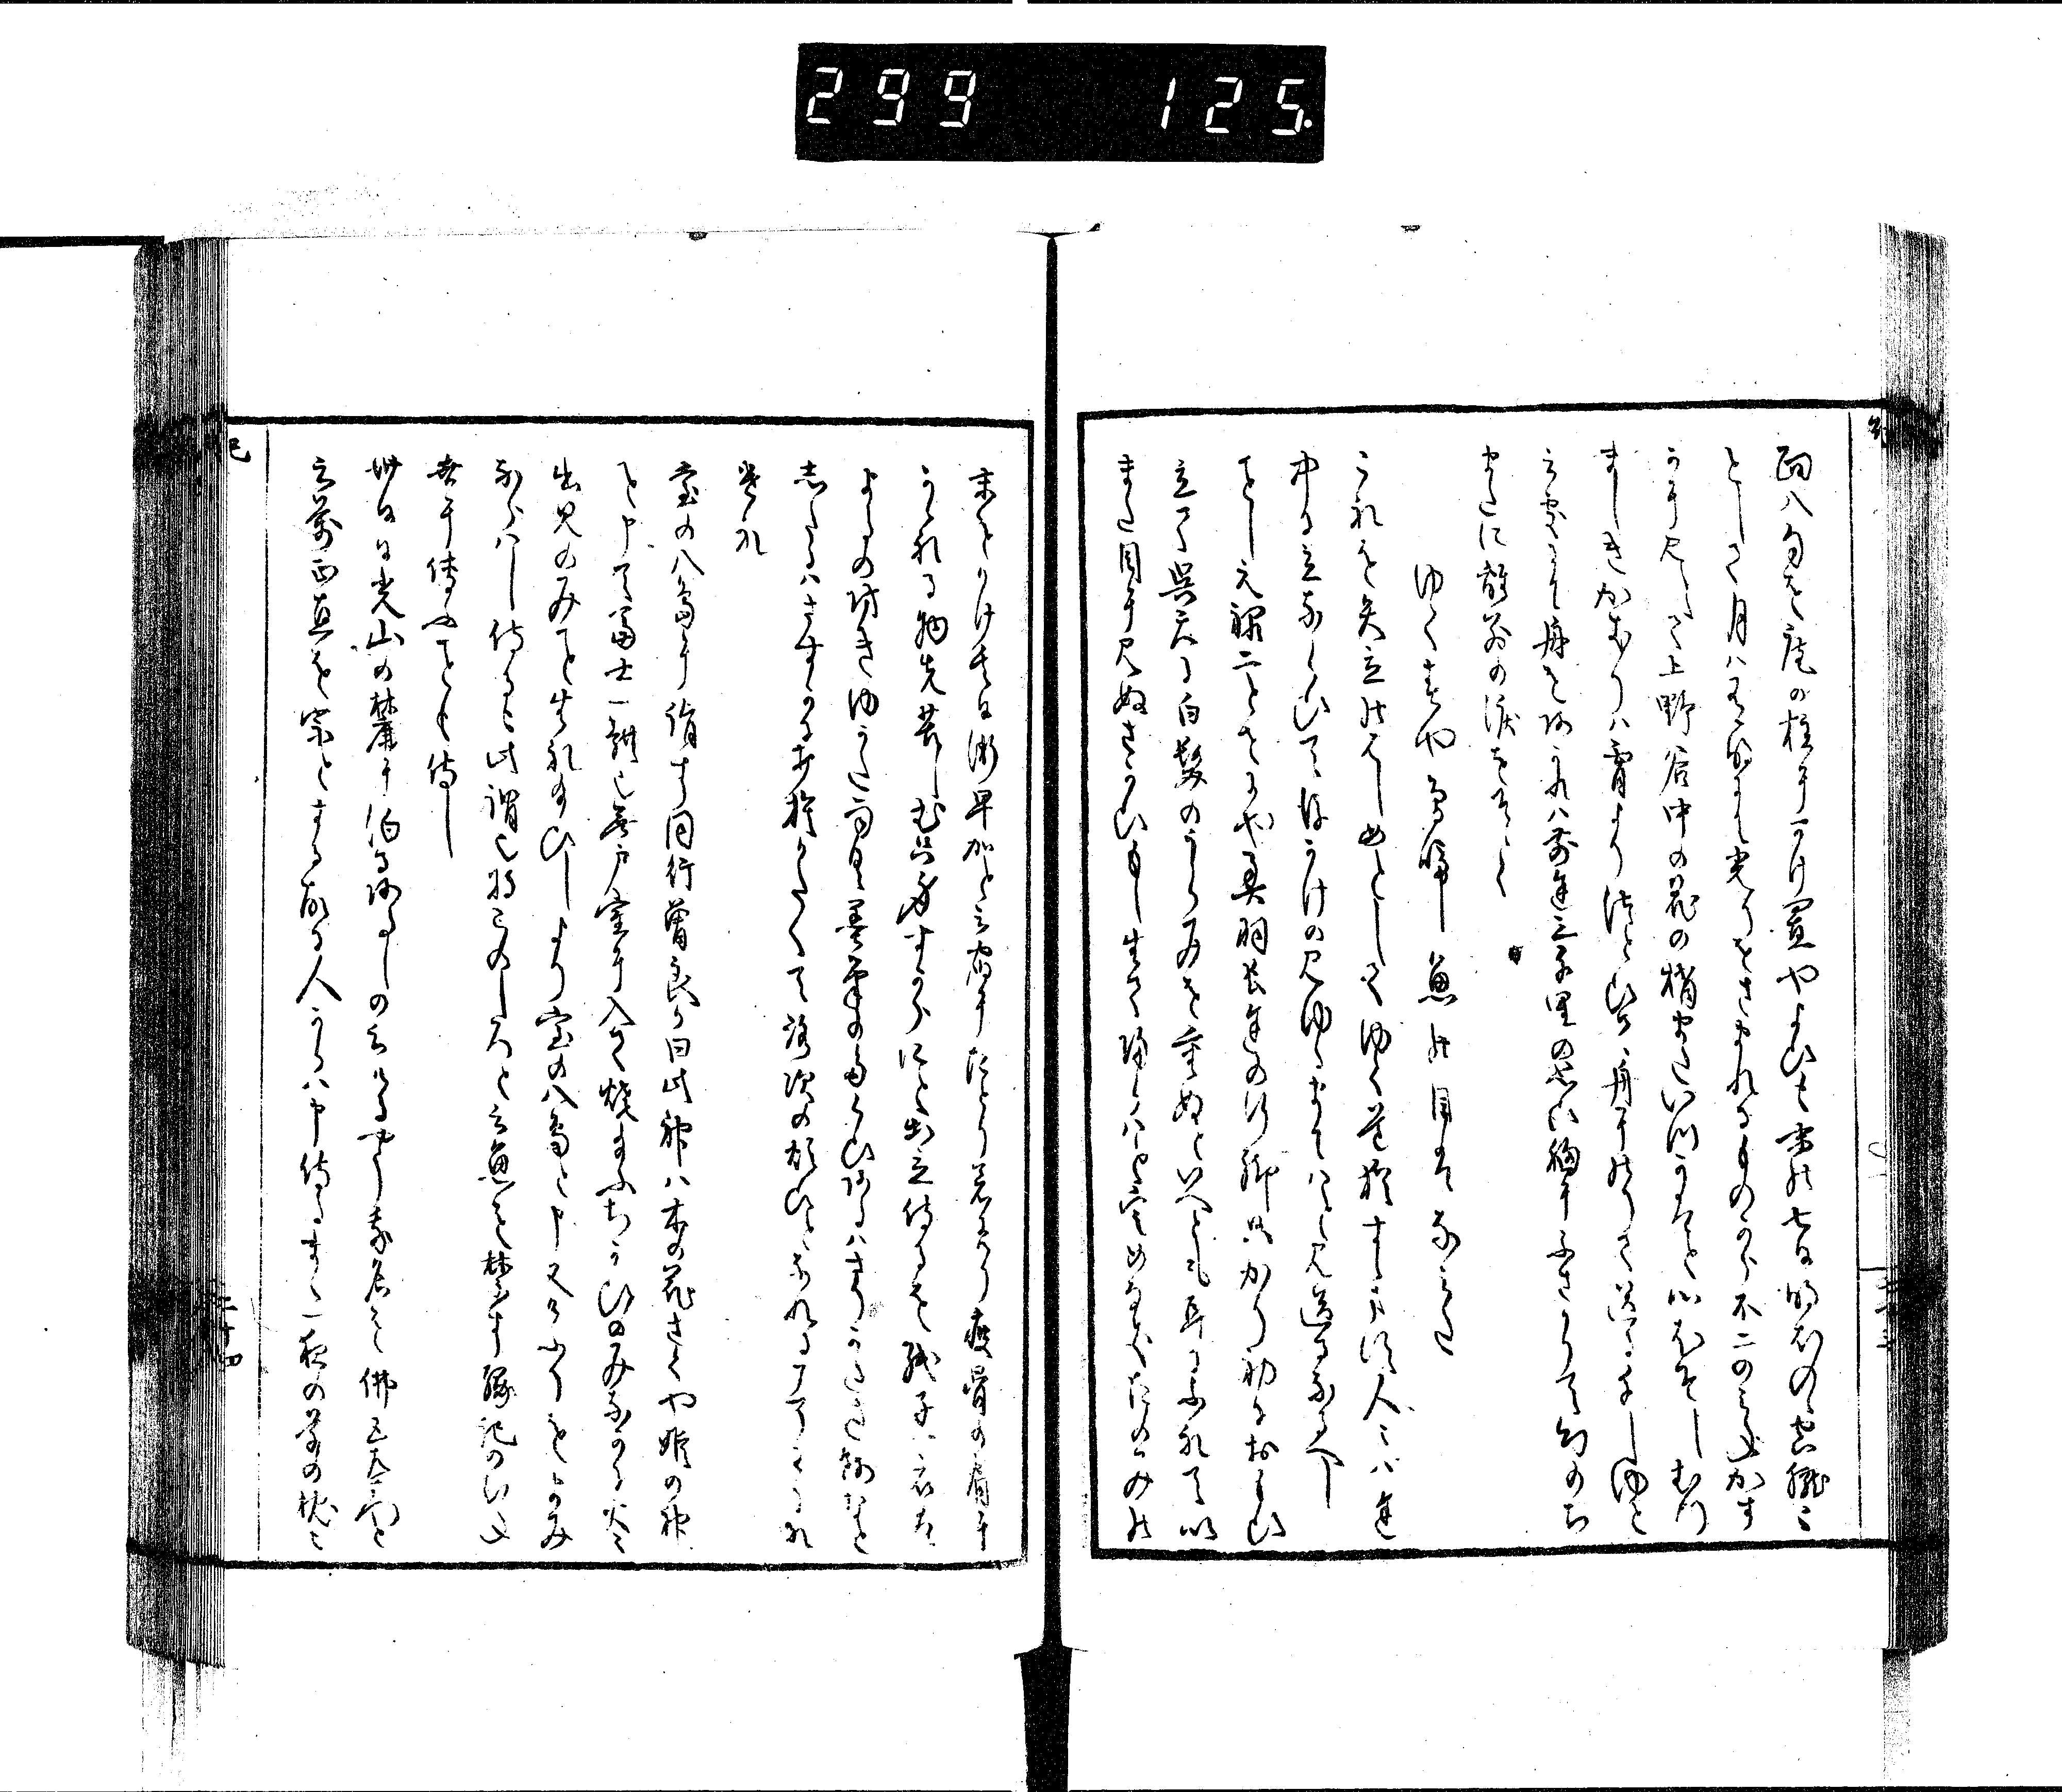 299 125.
面八句を庵の柱にかけ置やよひも末の七日明ほのゝ空朧々
として月は有明にて光りをさまれるものから不二の峯かす
かに見えて上野谷中の花の梢またいつかはと心ほそしむつ
ましきかきりは宵よりつとひて舟にのりて送るよしゆと
云處にて舟をあかれは前途三千里の思ひ胸にふさかりて幻のち
またに離別の泪をそゝく
ゆく春や鳥啼し魚の目は なみた
これを矢立のはしめとしてゆく道猶すゝます人々は途
中に立ならひて後かけの見ゆるまてはと見送るなるへし
ことし元禄二とせにや奥羽長途の行脚只かり初におもひ
立て呉天に白髪のうらみを重ぬといへとも耳にふれて以
また目に見ぬさかひもし生て帰らはと定めなきたのみの
末をかけ其日漸早加と云宿にたとり着にけり痩骨の肩に
かゝれる物先苦しむ只身すからにと出立侍るを紙子は衣た
よるの防きゆかた雨具墨筆のたくひあるはさりかたき餞なと
したるはさすかに打捨かたくて路次の煩ひとなれるこそわりな
けれ
室の八島に詣す同行曽良か曰此神は木の花さくや姫の神
と申て富士一躰也無戸室に入て焼給ふちかひのみ中に火々
出見のみこと生れ給ひしより室の八島と申又けふりをよみ
ならはし侍るも此謂也将このしろと云魚を禁す縁記のむね
世に傳ふことも侍し
卅日日光山の麓に泊るあるしの云けるやう我名を佛五左衛門と
云萬正直を宗とする故に人かくは申侍るまゝ一夜の草の枕も